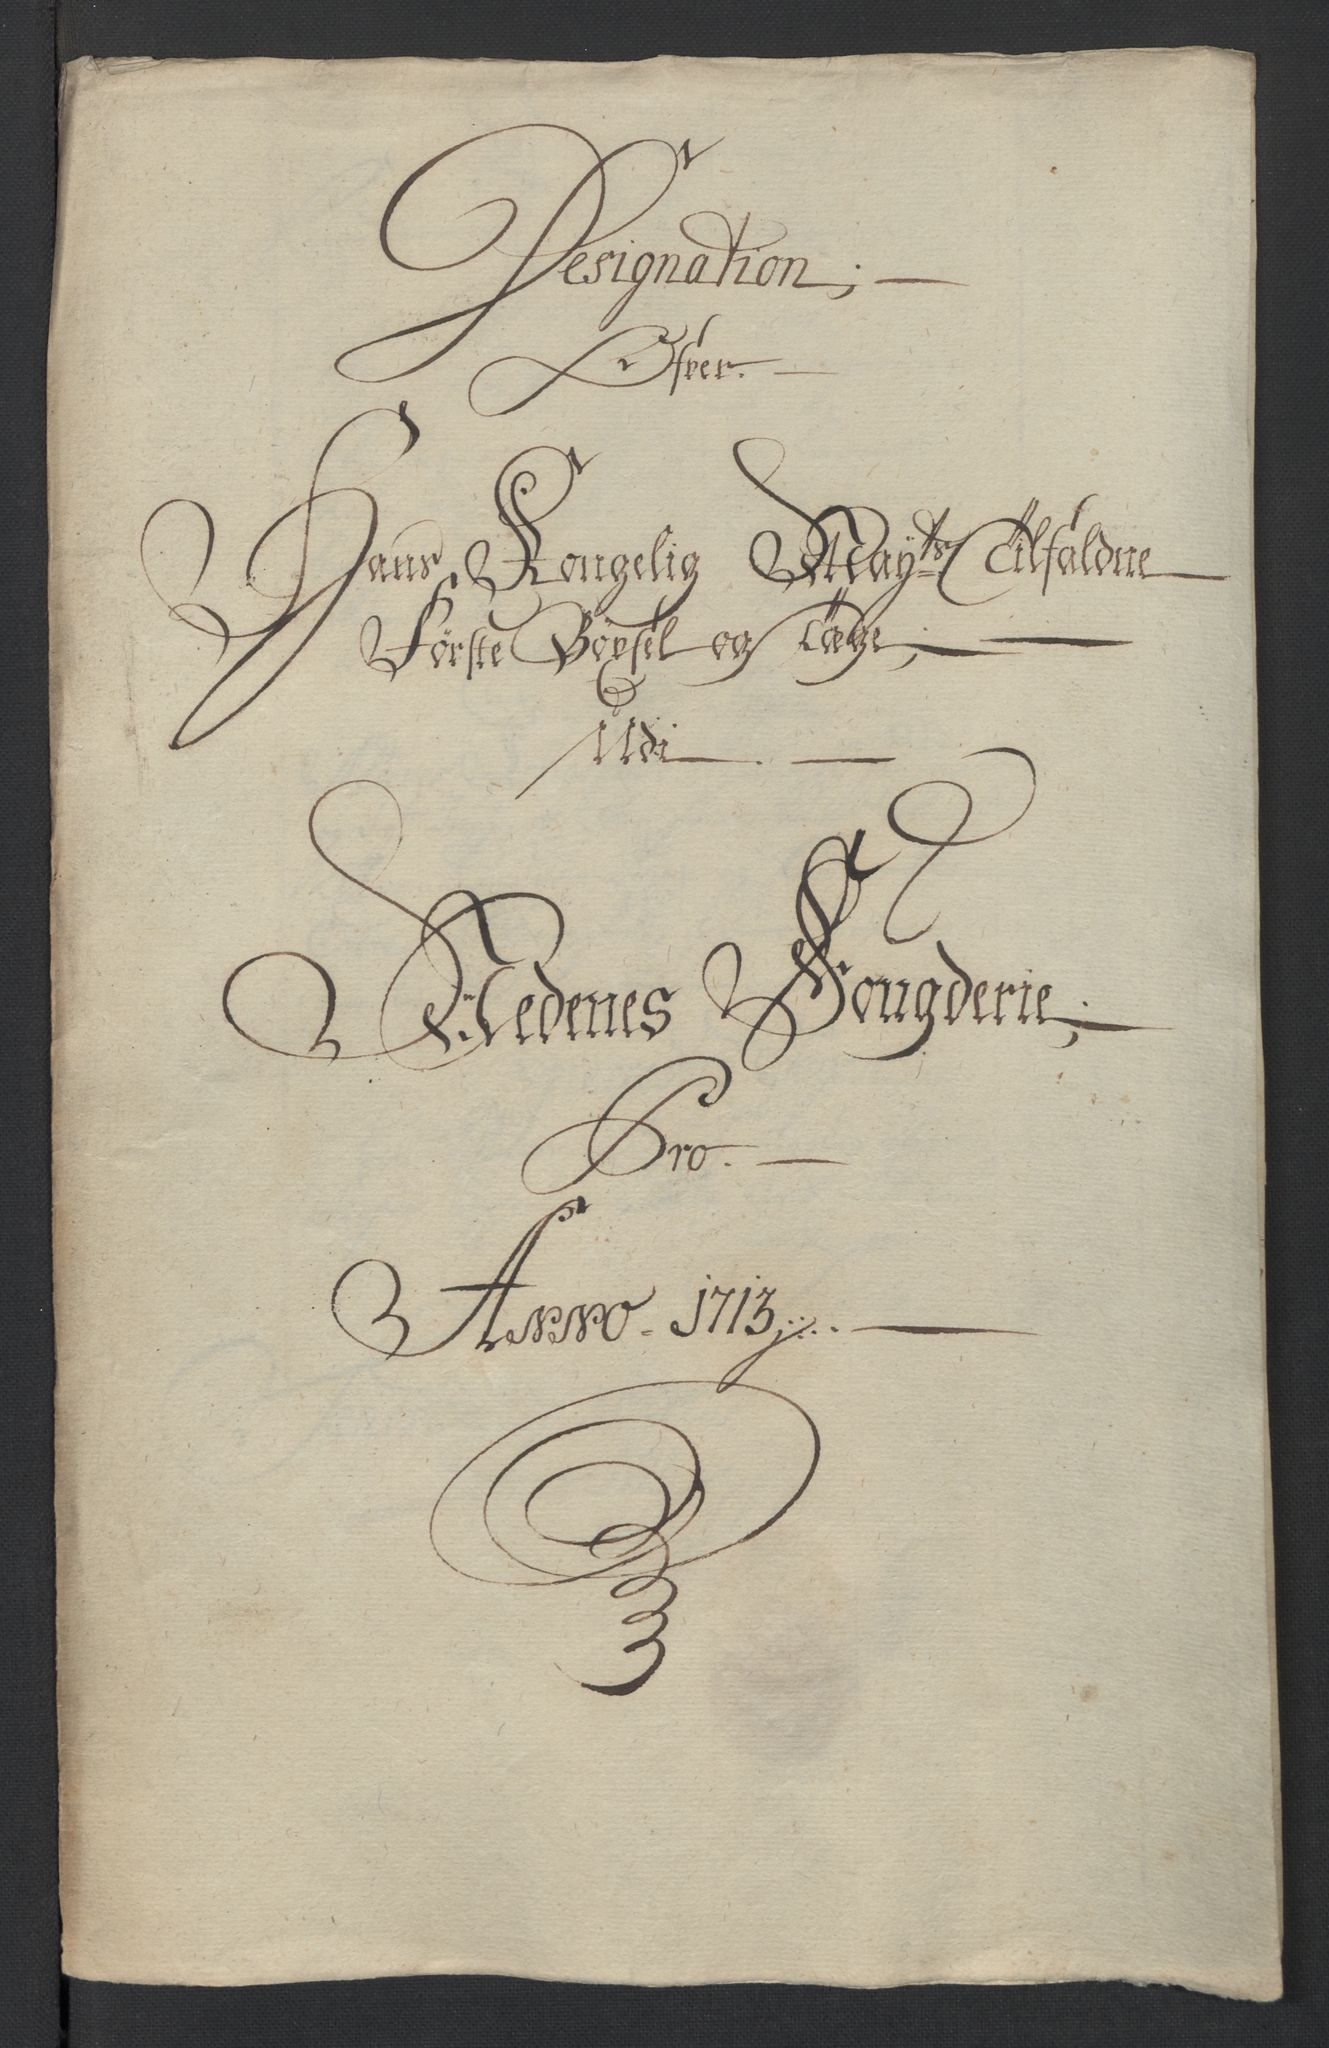 Designation;
Ofver.
Hans Kongelig Mayts: Tilfaldne
Første Böxsel og Tæge;
Udi
Nedenes Fougderie;
Pro.
Anno. 1713